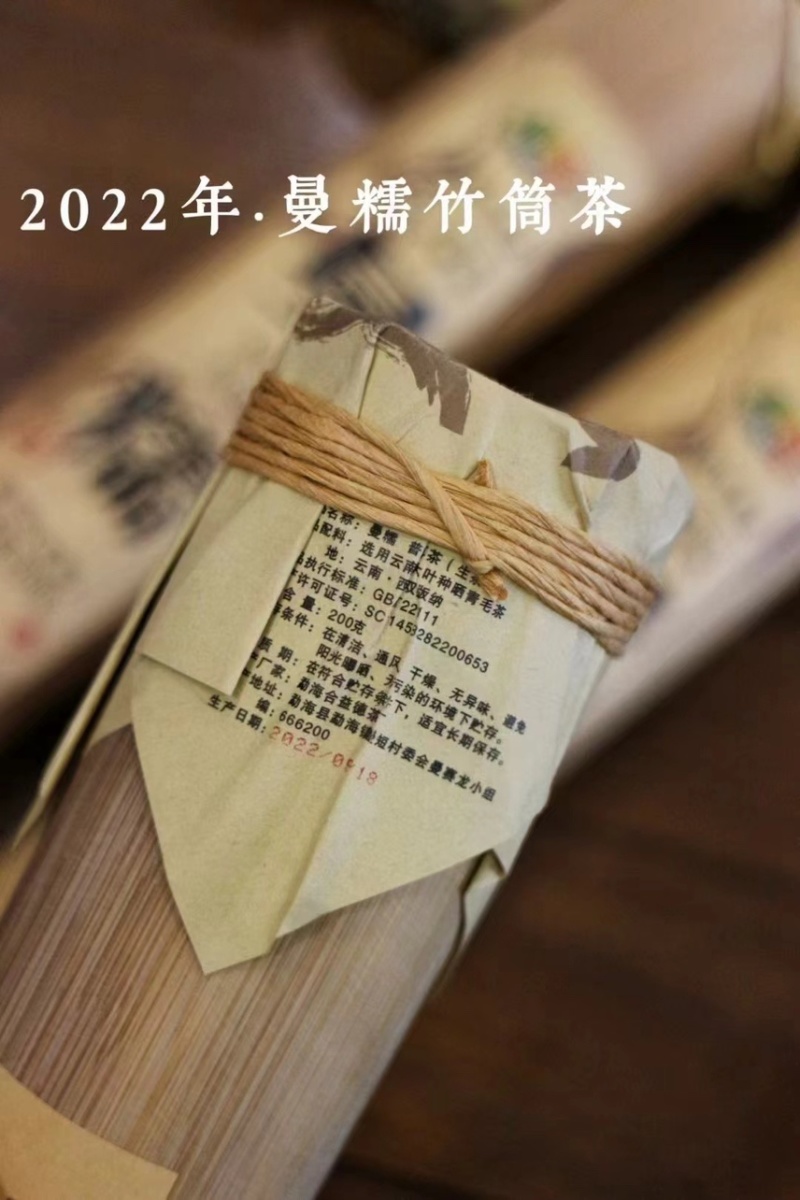 2022年·曼糯竹筒茶
名称：曼糯 普 茶（生
配料：选用云 大叶种晒青毛茶
地：云南·西双版纳
执行标准：GB/ 22111
许可证号：SC 145 282200653
含 量：200克
条件：在清洁、通风 干燥、无异味、避免
阳光 晒、无污染的环境下贮存。
质 期：在符合贮存条 下，适宜长期保存。
厂家：勐海合益德茶
地址：勐海县勐海镇 短村委会曼赛龙小组
编：666200
生产日期：2022/0 18